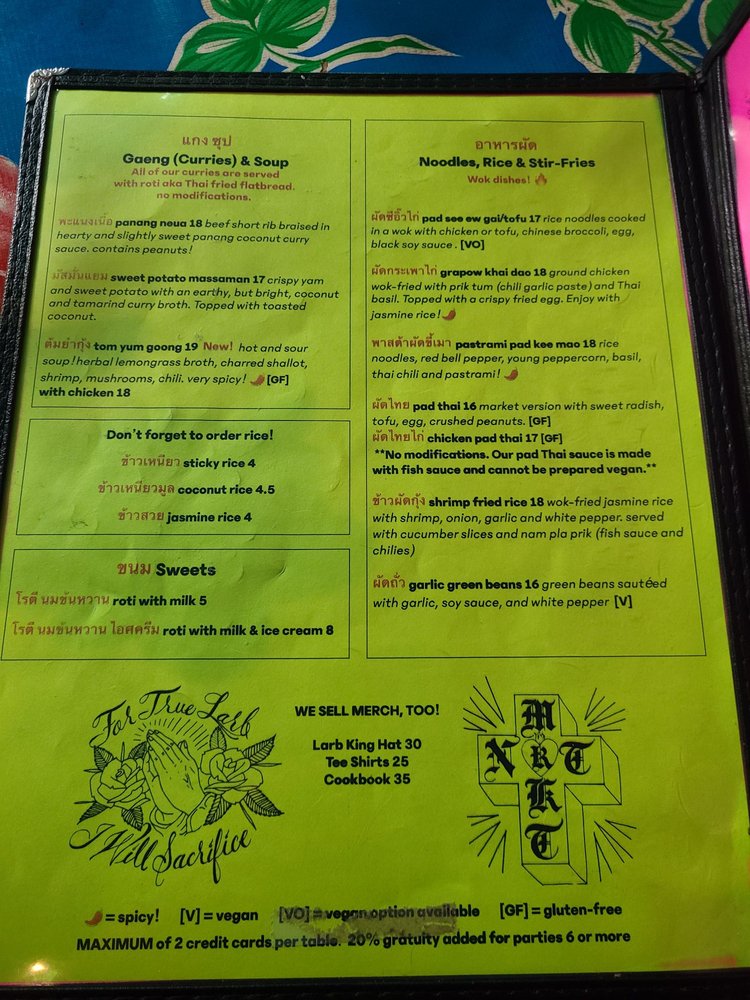 แกง ซุป
Gaeng (Curries) & Soup
All of our curries are served
with roti aka Thai fried flatbread.
no modifications.
พะแนงเนื้อ panang neua 18 beef short rib braised in
hearty and slightly sweet panang coconut curry
sauce. contains peanuts!
มัสมั่นแยม sweet potato massaman 17 crispy yam
and sweet potato with an earthy, but bright, coconut
and tamarind curry broth. Topped with toasted
coconut.
ต้มยำกุ้ง tom yum goong 19 New! hot and sour
soup! herbal lemongrass broth, charred shallot,
shrimp, mushrooms, chili. very spicy! 🌶️ [GF]
with chicken 18
Don't forget to order rice!
ข้าวเหนียว sticky rice 4
ข้าวเหนียวมูล coconut rice 4.5
ข้าวสวย jasmine rice 4
ขนม Sweets
โรตี นมข้นหวาน roti with milk 5
โรตี นมข้นหวาน ไอศครีม roti with milk & ice cream 8
อาหารผัด
Noodles, Rice & Stir-Fries
Wok dishes! 🔥
ผัดซีอิ๊วไก่ pad see ew gai/tofu 17 rice noodles cooked
in a wok with chicken or tofu, chinese broccoli, egg,
black soy sauce . [VO]
ผัดกระเพาไก่ grapow khai dao 18 ground chicken
wok-fried with prik tum (chili garlic paste) and Thai
basil. Topped with a crispy fried egg. Enjoy with
jasmine rice! 🌶️
พาสต้าผัดขี้เมา pastrami pad kee mao 18 rice
noodles, red bell pepper, young peppercorn, basil,
thai chili and pastrami! 🌶️
ผัดไทย pad thai 16 market version with sweet radish,
tofu, egg, crushed peanuts. [GF]
ผัดไทยไก่ chicken pad thai 17 [GF]
**No modifications. Our pad Thai sauce is made
with fish sauce and cannot be prepared vegan.**
ข้าวผัดกุ้ง shrimp fried rice 18 wok-fried jasmine rice
with shrimp, onion, garlic and white pepper. served
with cucumber slices and nam pla prik (fish sauce and
chilies)
ผัดถั่ว garlic green beans 16 green beans sautéed
with garlic, soy sauce, and white pepper [V]
For True Larb
I Will Sacrifice
WE SELL MERCH, TOO!
Larb King Hat 30
Tee Shirts 25
Cookbook 35
M
N R T
K
T
🌶️ = spicy! [V] = vegan [VO] = vegan option available [GF] = gluten-free
MAXIMUM of 2 credit cards per table. 20% gratuity added for parties 6 or more